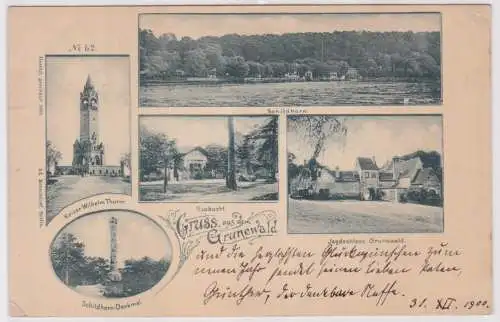 No 62
Schildhorn
Kaiser Wilhelm Thurm
Jagdschloss Grunewald.
Gruss aus dem
Grunewald
Schildhorn-Denkmal
und die herzlichsten Glückwünsche zum
neuen Jahr sendet seinen lieben Paten,
Günther, der dankbare Neffe.
31. XII. 1900.